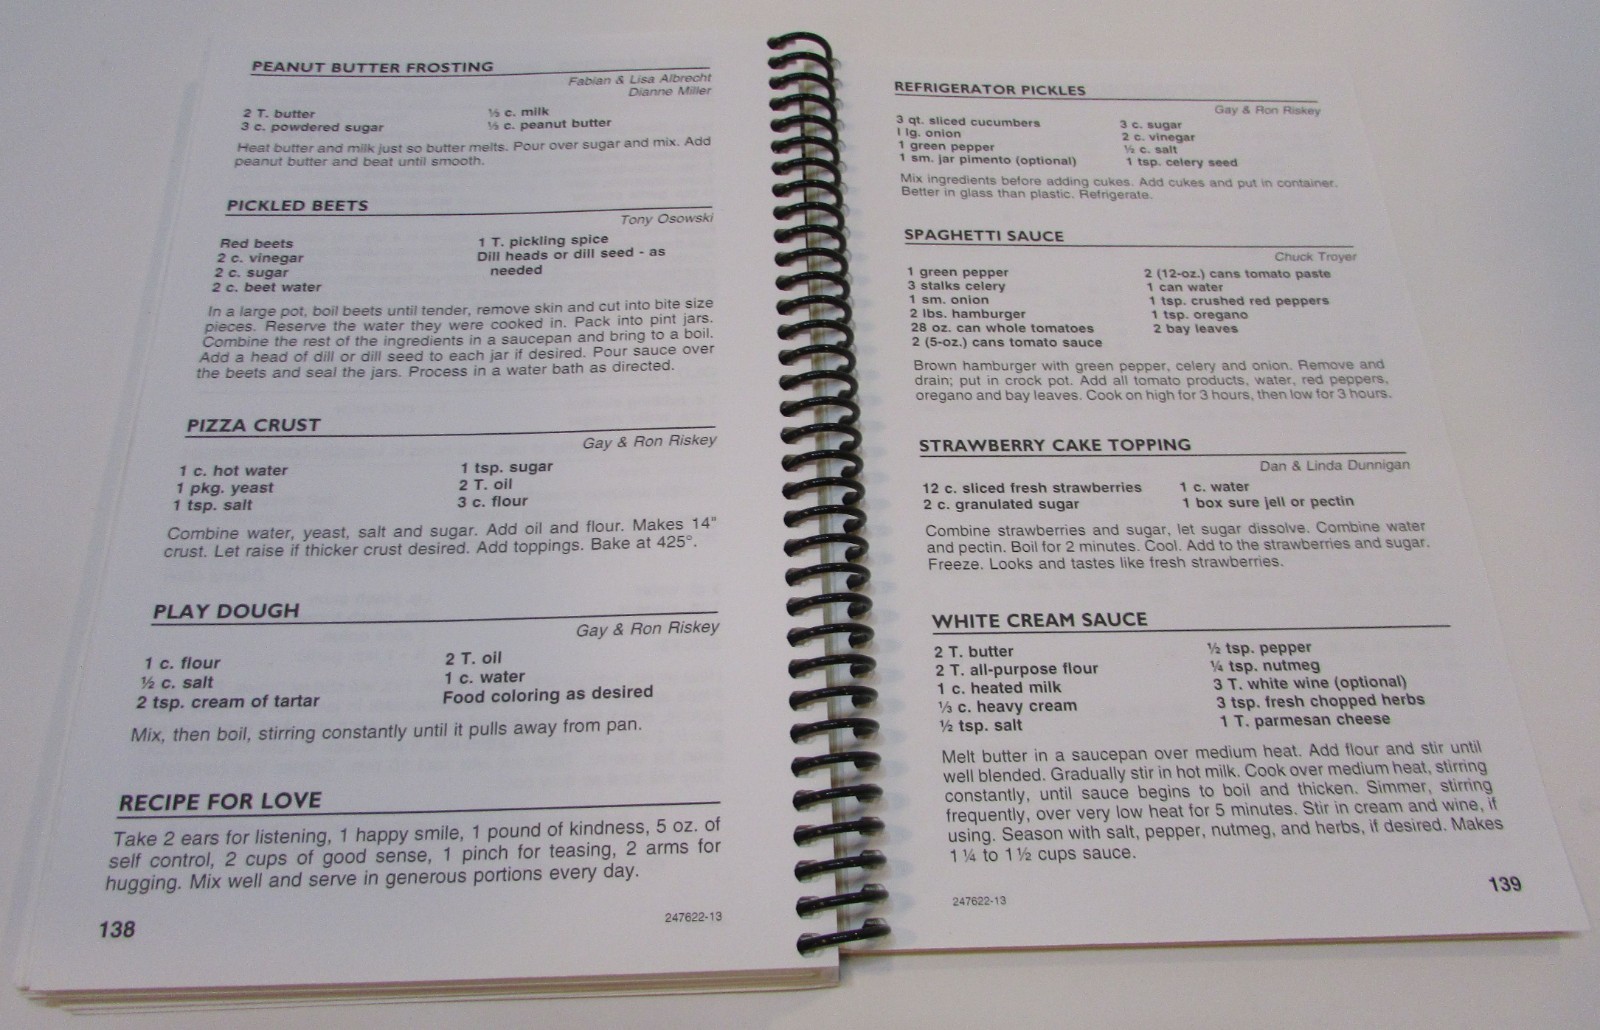 PEANUT BUTTER FROSTING
Fabian & Lisa Albrecht
Dianne Miller
2 T. butter
3 c. powdered sugar
⅓ c. milk
⅓ c. peanut butter
Heat butter and milk just so butter melts. Pour over sugar and mix. Add
peanut butter and beat until smooth.
PICKLED BEETS
Tony Osowski
Red beets
2 c. vinegar
2 c. sugar
2 c. beet water
1 T. pickling spice
Dill heads or dill seed - as
needed
In a large pot, boil beets until tender, remove skin and cut into bite size
pieces. Reserve the water they were cooked in. Pack into pint jars.
Combine the rest of the ingredients in a saucepan and bring to a boil.
Add a head of dill or dill seed to each jar if desired. Pour sauce over
the beets and seal the jars. Process in a water bath as directed.
PIZZA CRUST
Gay & Ron Riskey
1 c. hot water
1 pkg. yeast
1 tsp. salt
1 tsp. sugar
2 T. oil
3 c. flour
Combine water, yeast, salt and sugar. Add oil and flour. Makes 14"
crust. Let raise if thicker crust desired. Add toppings. Bake at 425°.
PLAY DOUGH
Gay & Ron Riskey
1 c. flour
½ c. salt
2 tsp. cream of tartar
2 T. oil
1 c. water
Food coloring as desired
Mix, then boil, stirring constantly until it pulls away from pan.
RECIPE FOR LOVE
Take 2 ears for listening, 1 happy smile, 1 pound of kindness, 5 oz. of
self control, 2 cups of good sense, 1 pinch for teasing, 2 arms for
hugging. Mix well and serve in generous portions every day.
138
247622-13
REFRIGERATOR PICKLES
Gay & Ron Riskey
3 qt. sliced cucumbers
1 lg. onion
1 green pepper
1 sm. jar pimento (optional)
3 c. sugar
2 c. vinegar
½ c. salt
1 tsp. celery seed
Mix ingredients before adding cukes. Add cukes and put in container.
Better in glass than plastic. Refrigerate.
SPAGHETTI SAUCE
Chuck Troyer
1 green pepper
3 stalks celery
1 sm. onion
2 lbs. hamburger
28 oz. can whole tomatoes
2 (5-oz.) cans tomato sauce
2 (12-oz.) cans tomato paste
1 can water
1 tsp. crushed red peppers
1 tsp. oregano
2 bay leaves
Brown hamburger with green pepper, celery and onion. Remove and
drain; put in crock pot. Add all tomato products, water, red peppers,
oregano and bay leaves. Cook on high for 3 hours, then low for 3 hours.
STRAWBERRY CAKE TOPPING
Dan & Linda Dunnigan
12 c. sliced fresh strawberries
2 c. granulated sugar
1 c. water
1 box sure jell or pectin
Combine strawberries and sugar, let sugar dissolve. Combine water
and pectin. Boil for 2 minutes. Cool. Add to the strawberries and sugar.
Freeze. Looks and tastes like fresh strawberries.
WHITE CREAM SAUCE
2 T. butter
2 T. all-purpose flour
1 c. heated milk
⅓ c. heavy cream
½ tsp. salt
½ tsp. pepper
¼ tsp. nutmeg
3 T. white wine (optional)
3 tsp. fresh chopped herbs
1 T. parmesan cheese
Melt butter in a saucepan over medium heat. Add flour and stir until
well blended. Gradually stir in hot milk. Cook over medium heat, stirring
constantly, until sauce begins to boil and thicken. Simmer, stirring
frequently, over very low heat for 5 minutes. Stir in cream and wine, if
using. Season with salt, pepper, nutmeg, and herbs, if desired. Makes
1 ¼ to 1 ½ cups sauce.
247622-13
139